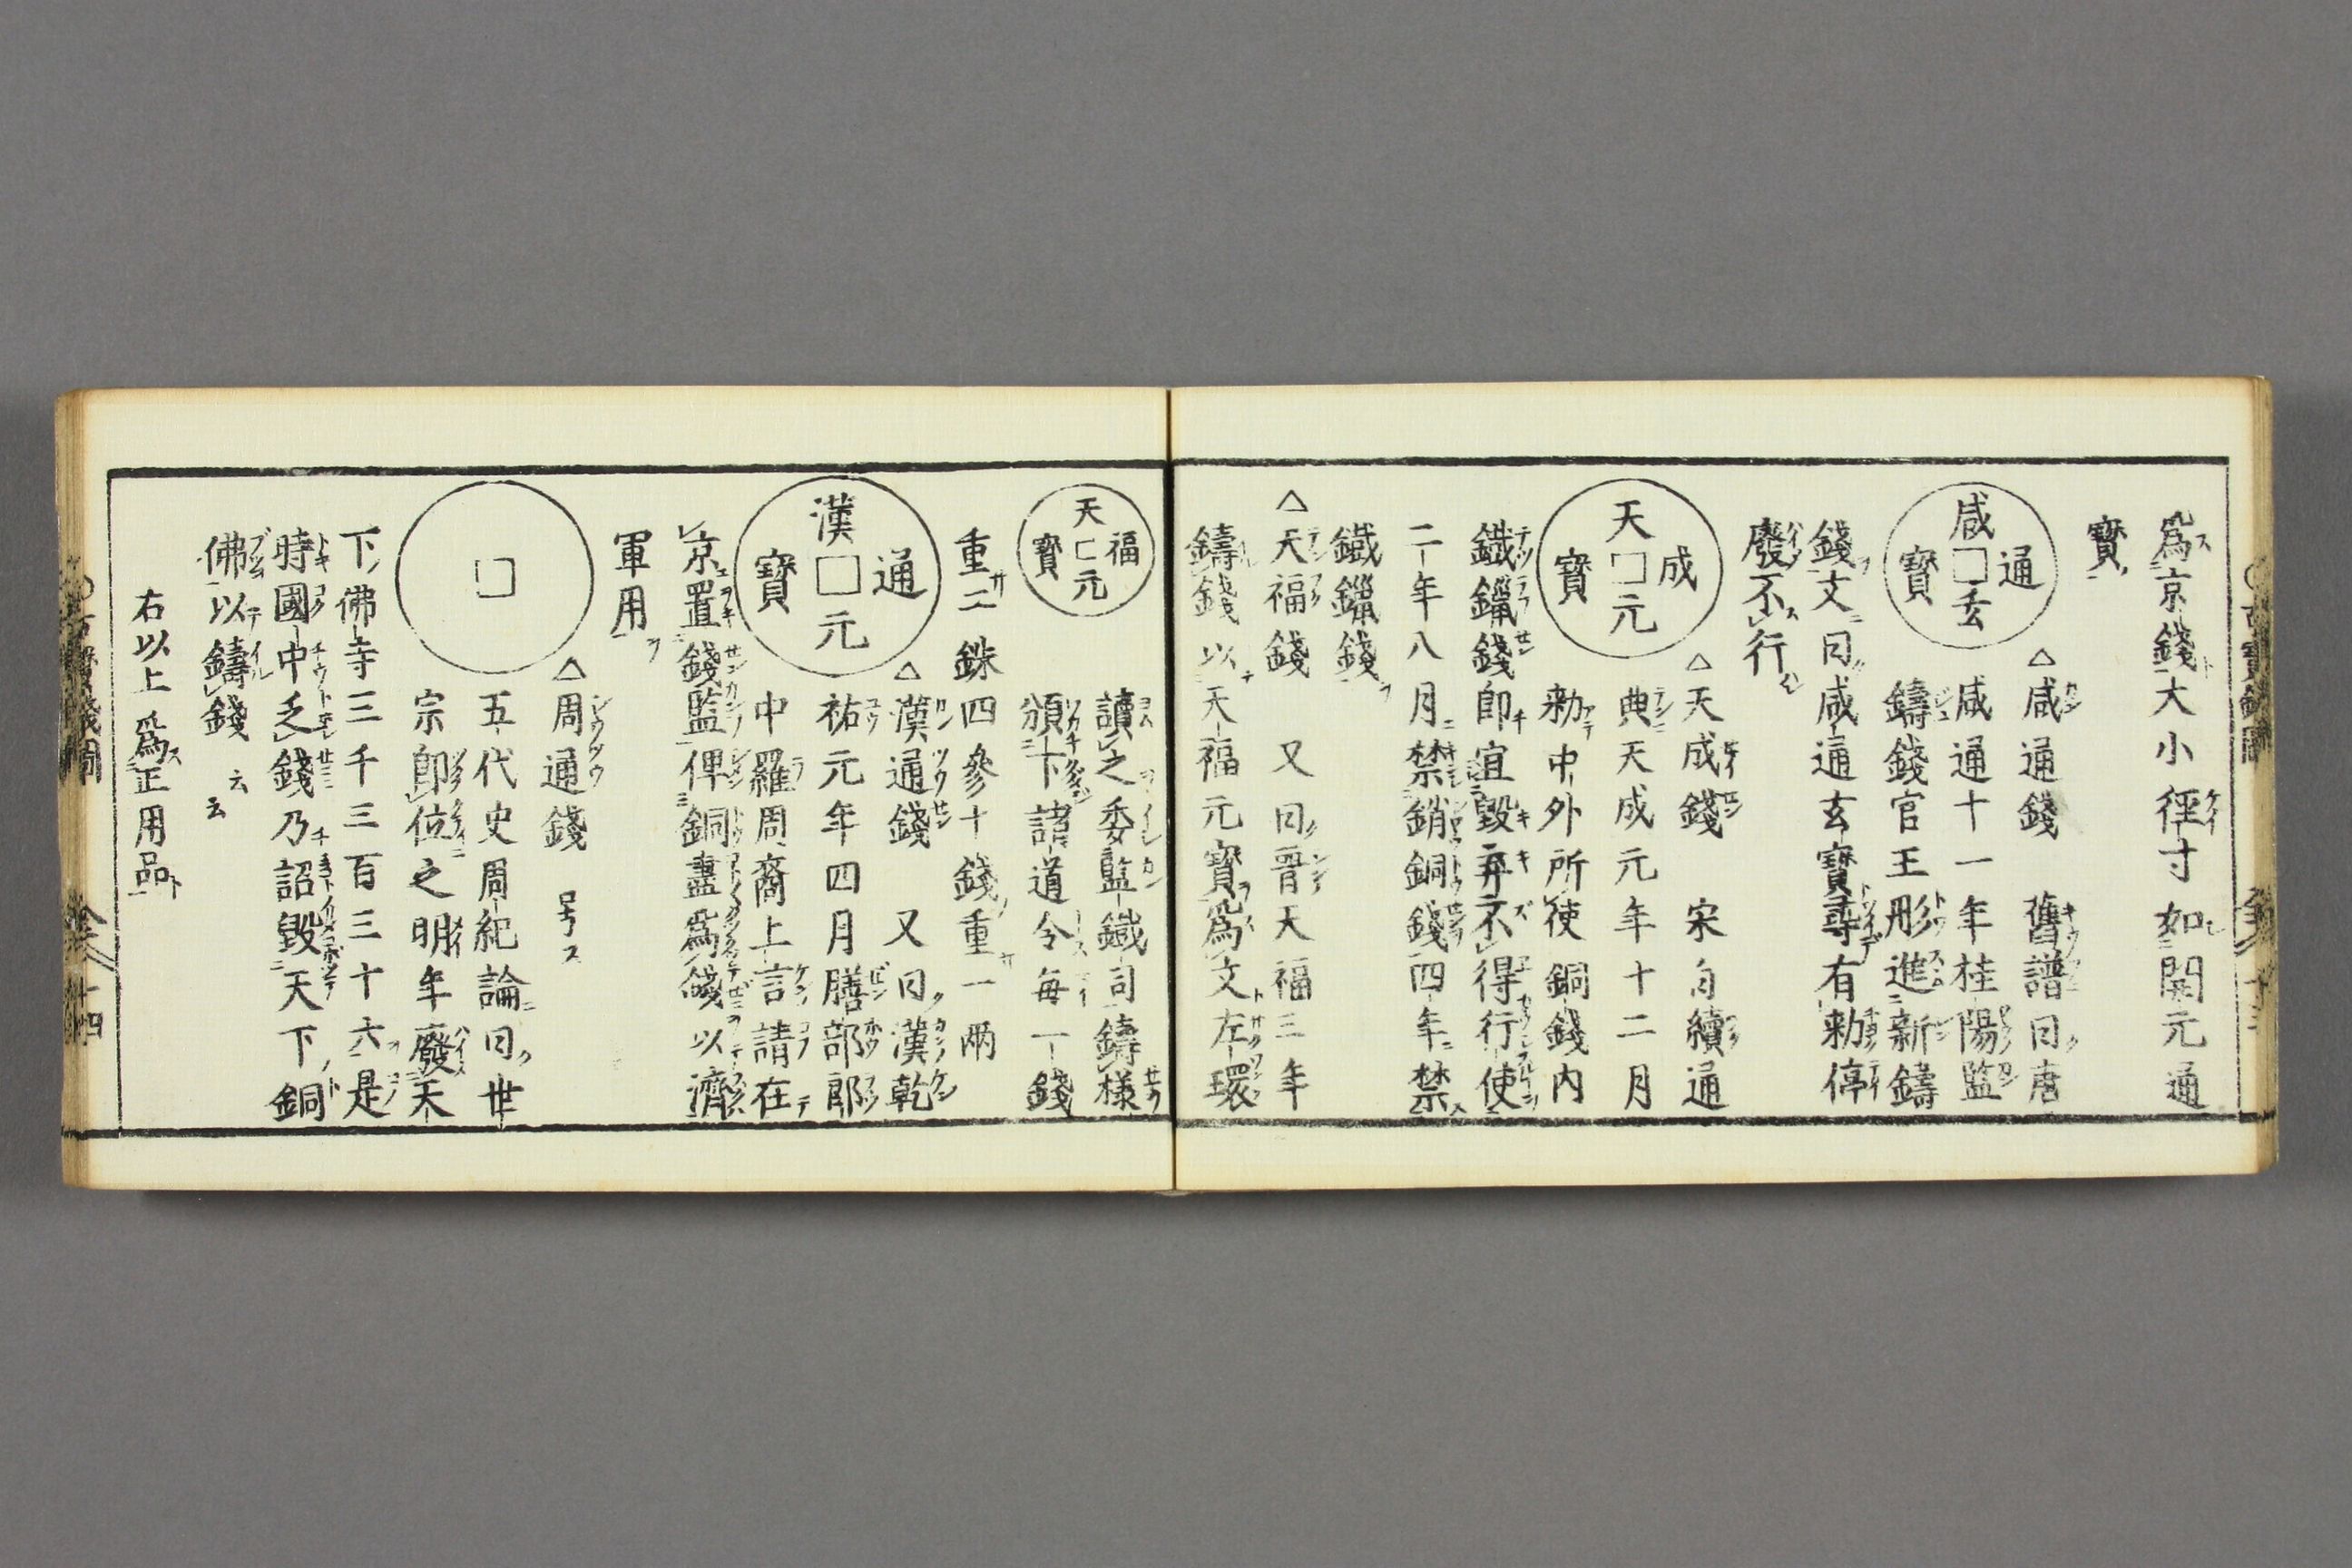 爲京錢大小徑寸如開元通
寶
咸通玄寶
△咸通錢 舊譜曰唐
咸通十一年桂陽監
鑄錢官王彤進新鑄
錢文曰咸通玄寶尋有勅停
廢不行
天成元寶
△天成錢 宋白續通
典天成元年十二月
勅中外所使銅錢内
鐵鑞錢即宜毀弃不得行使
二年八月禁銷銅錢四年禁
鐵鑞錢
△天福錢 又曰晋天福三年
鑄錢以天福元寶爲文左環
天福元寶
讀之委監鐵司鑄樣
頒下諸道令每一錢
重二銖四參十錢重一兩
漢通元寶
△漢通錢 又曰漢乾
祐元年四月膳部郎
中羅周裔上言請在
京置錢監俾銅盡爲錢以濟
軍用
△周通錢 号ス
五代史周紀論曰世
宗即位之明年廢天
下佛寺三千三百三十六是
時國中乏錢乃詔毀天下銅
佛以鑄錢云云
右以上爲正用品
十四